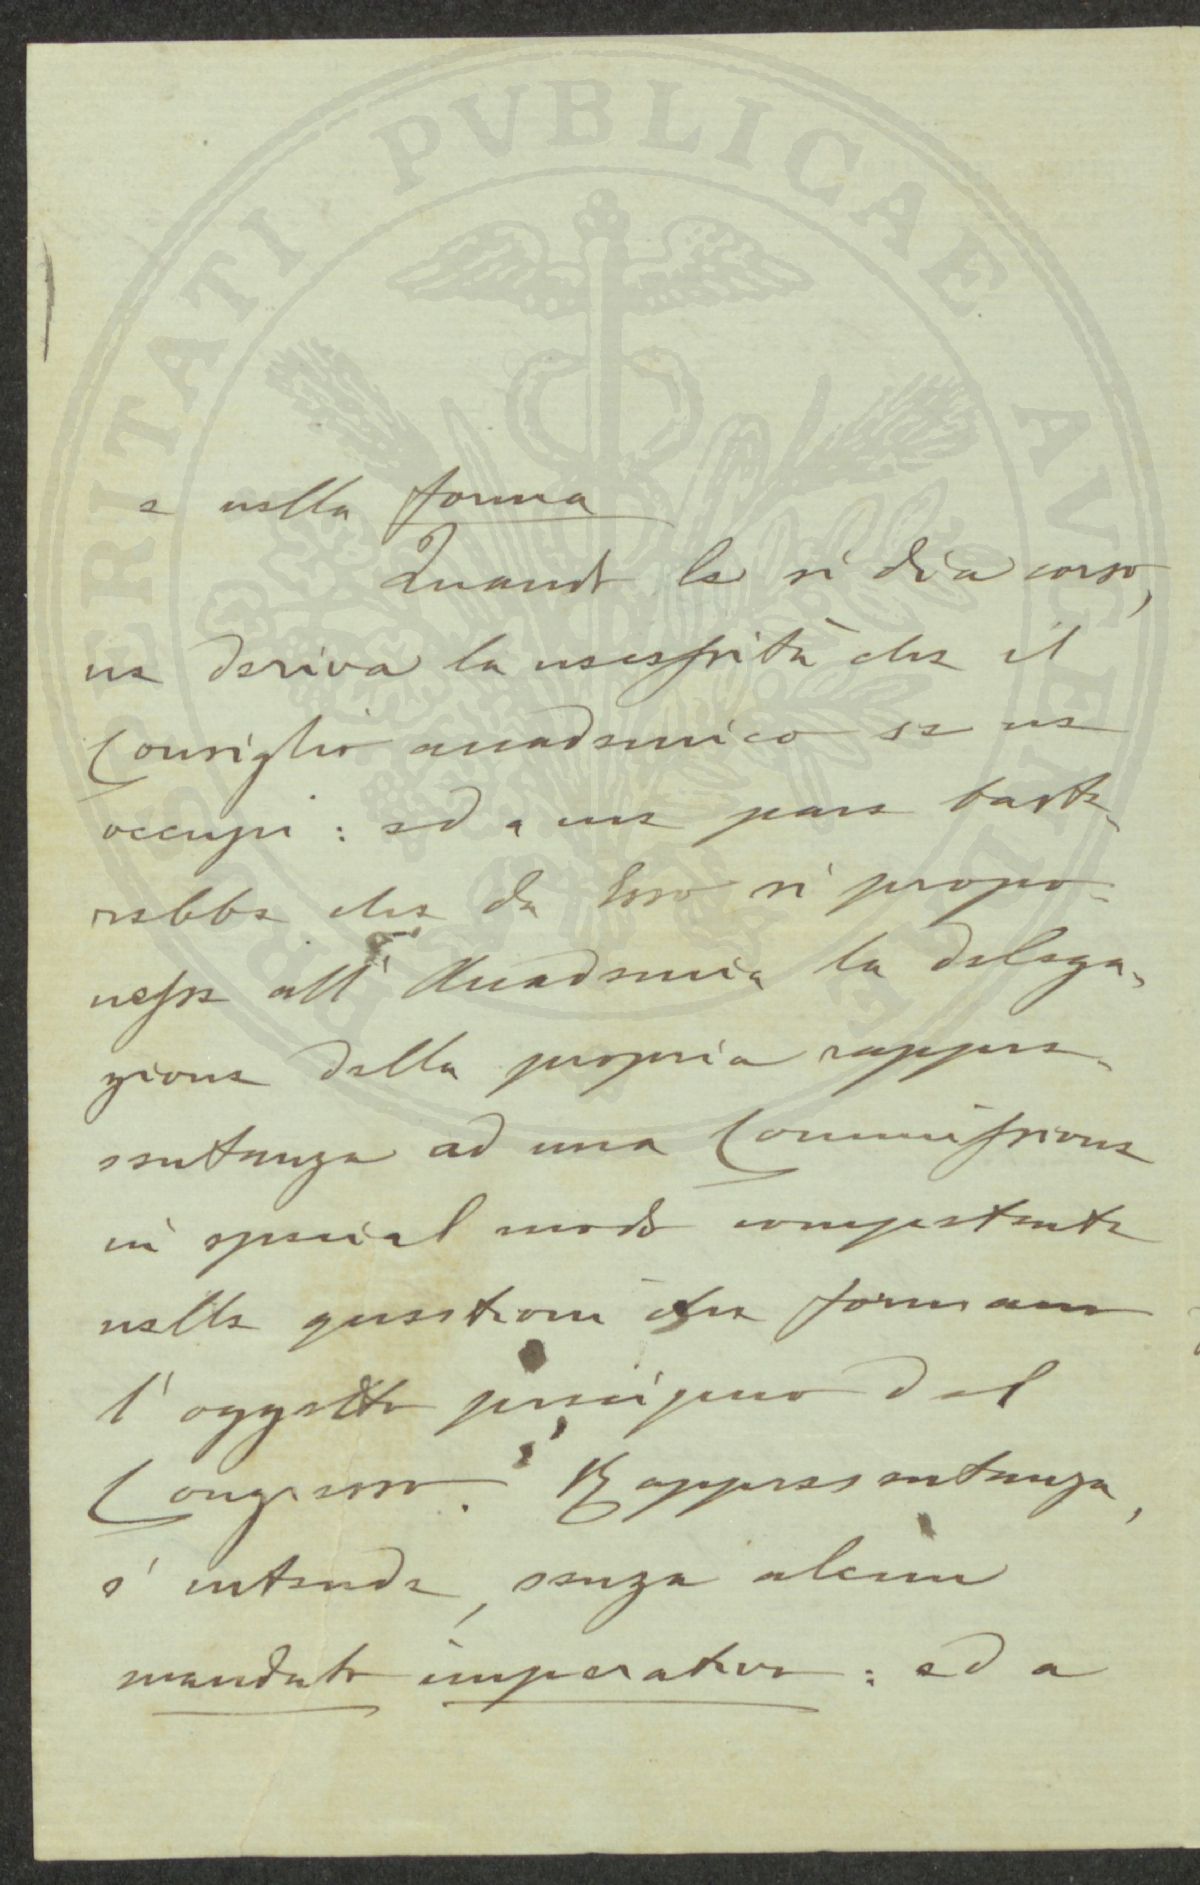 PROSPERITATI PVBLICAE AVGENDAE
e nella forma
Quando le si dia corso,
ne deriva la necessità che il
Consiglio accademico se ne
occupi : ed a me pare baste-
rebbe che da Esso si propo-
nesse all' Accademia la delega-
zione della propria rappre-
sentanza ad una Commissione
in special modo competente
nelle questioni che formano
l'oggetto precipuo del
Congresso. Rappresentanza,
s'intende, senza alcun
mandato imperativo : ed a